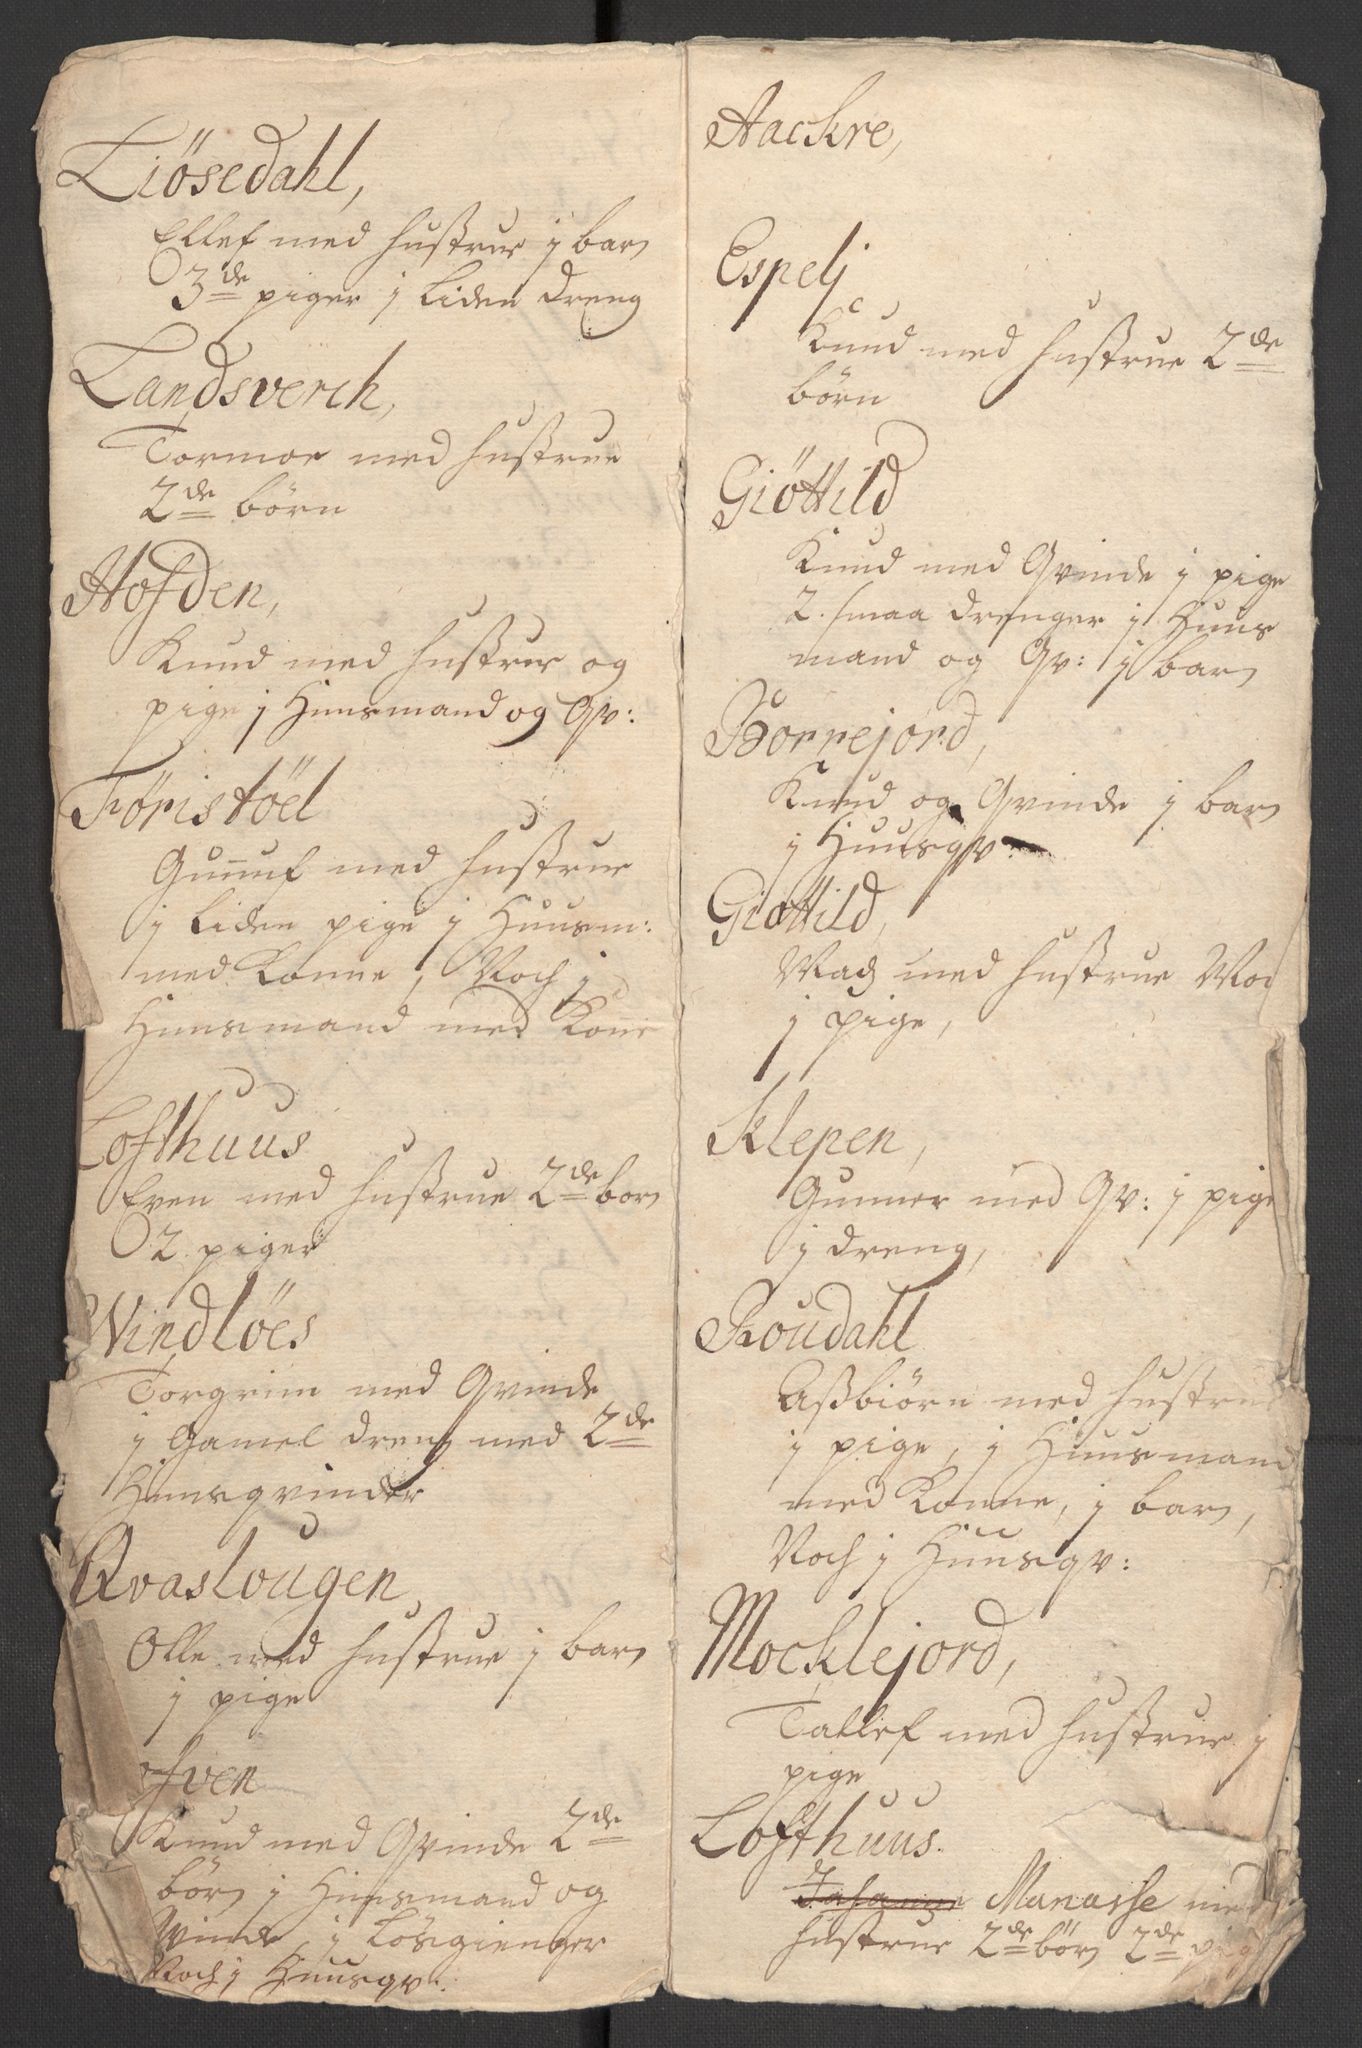 Tiösedahl,
Ellef med hustrue j barn
3de piger j liden dreng
Landsverch,
Tormoe med hustrue
2de børn
Hofden,
Knud med hustrue og
pige j Huusmand og Qv:
Føristöel
Gunnuf med hustrue
j liden pige j Huusm:
med Konne, Noch j
Huusmand med Kone
Lofthuus
Even med hustrue 2de born
2 piger
Windlöes
Torgrim med Qvinde
j Gamel dreng med 2de
Huusqvinder
Qvaslougen,
Olle med hustrue j barn
j pige
Iven
Knud med Qvinde 2de
börn j Huusmand og
Qvinde j Lösgienger
Noch j Huusqv:
Aackre,
Espelj
Knud med hustrue 2de
børn
Giöttild
Knud med Qvinde j pige
2. smaa drenger j Huus
mand og Qv: j barn
Borrejord,
Knud og Qvinde j barn
j Huusqv
Giøttild,
Mads med hustrue Noch
j pige,
Klepen,
Gunner med Qv: j pige
j dreng,
Roudahl
Aßbiörn med hustrue
j pige, j Huusmand
med Konne, j barn,
Noch j Huusqv:
Mocklejord,
Tallef med hustrue j
pige
Lofthuus.
Manasse med
hustrue 2de börn 2de pig